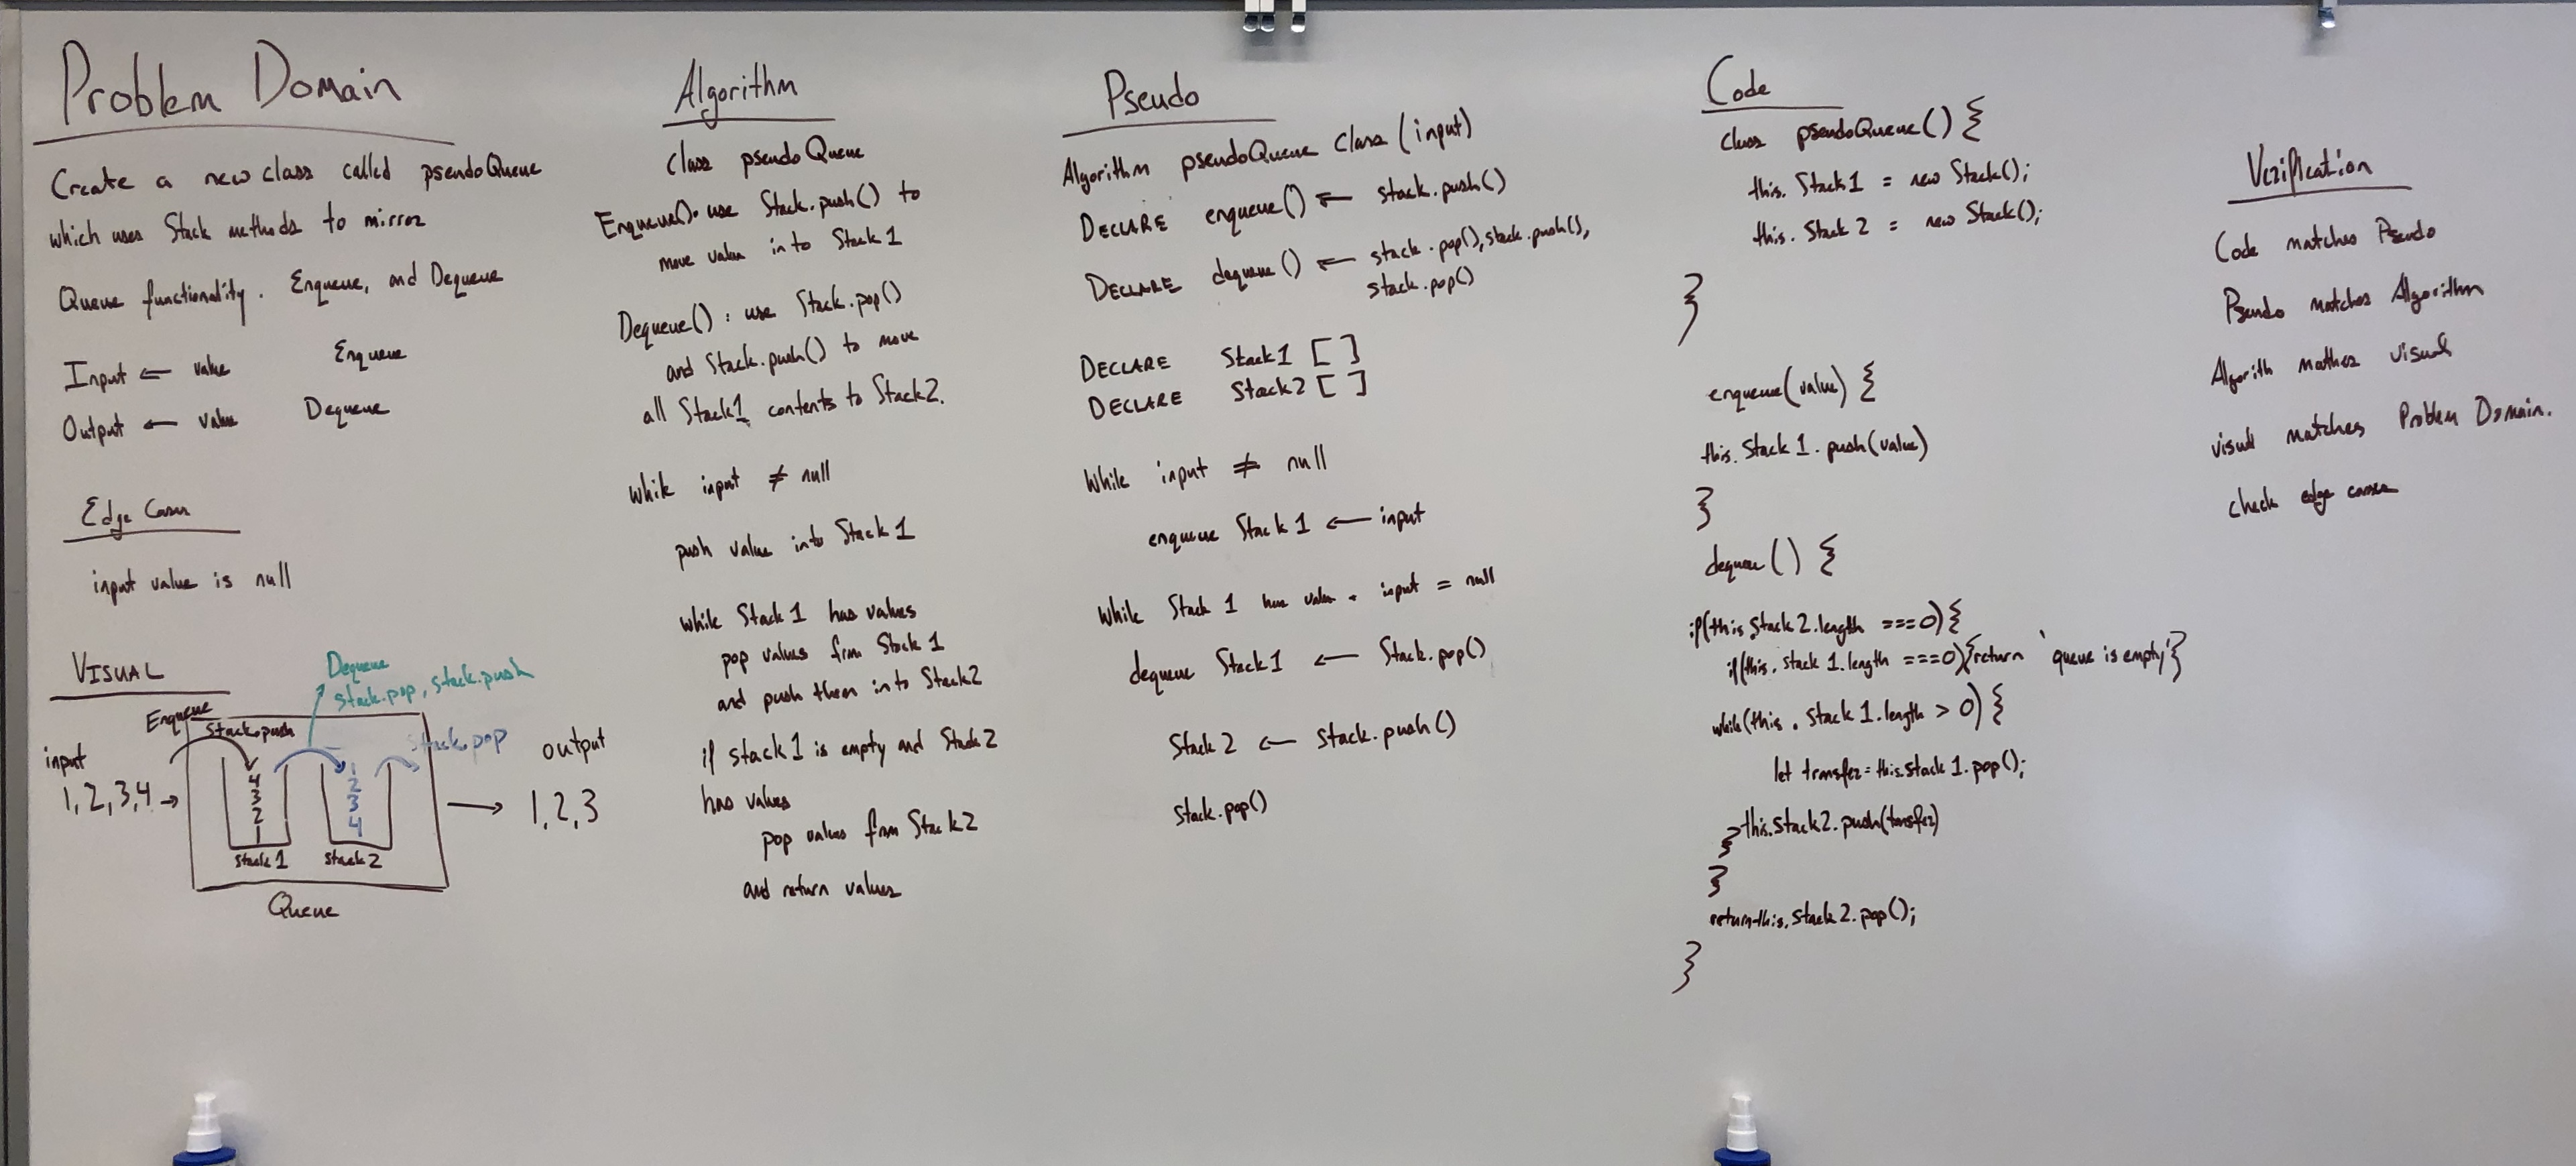 Problem Domain
Create a new class called pseudoQueue
which uses Stack methods to mirror
Queue functionality. Enqueue, and Dequeue
Input ← value Enqueue
Output ← value Dequeue
Edge Cases
input value is null
VISUAL
Dequeue
stack.pop, stack.push
Enqueue
stack.push
stack.pop
input
1,2,3,4 →
4
3
2
1
1
2
3
4
stack 1
stack 2
Queue
output
→ 1,2,3
Algorithm
Class pseudoQueue
Enqueue(): use Stack.push() to
move value into Stack 1
Dequeue(): use Stack.pop()
and Stack.push() to move
all Stack1 contents to Stack2.
while input ≠ null
push value into Stack 1
while Stack 1 has values
pop values from Stack 1
and push them into Stack2
if stack 1 is empty and Stack 2
has values
pop values from Stack 2
and return values
Pseudo
Algorithm pseudoQueue Class (input)
DECLARE enqueue() ← stack.push()
DECLARE dequeue() ← stack.pop(), stack.push(),
stack.pop()
DECLARE Stack1 [ ]
DECLARE Stack2 [ ]
While input ≠ null
enqueue Stack 1 ← input
While Stack 1 has value input = null
dequeue Stack 1 ← Stack.pop()
Stack 2 ← stack.push()
stack.pop()
Code
class pseudoQueue() {
this.Stack1 = new Stack();
this.Stack 2 = new Stack();
}
enqueue(value) {
this.Stack 1.push(value)
}
dequeue() {
if(this.Stack 2.length === 0) {
if(this.stack 1.length === 0){return 'queue is empty'}
while(this.Stack 1.length > 0) {
let transfer = this.stack 1.pop();
this.stack2.push(transfer)
}
}
return this.stack 2.pop();
}
Verification
Code matches Pseudo
Pseudo matches Algorithm
Algorith mathes visual
visual matches Problem Domain.
check edge cases